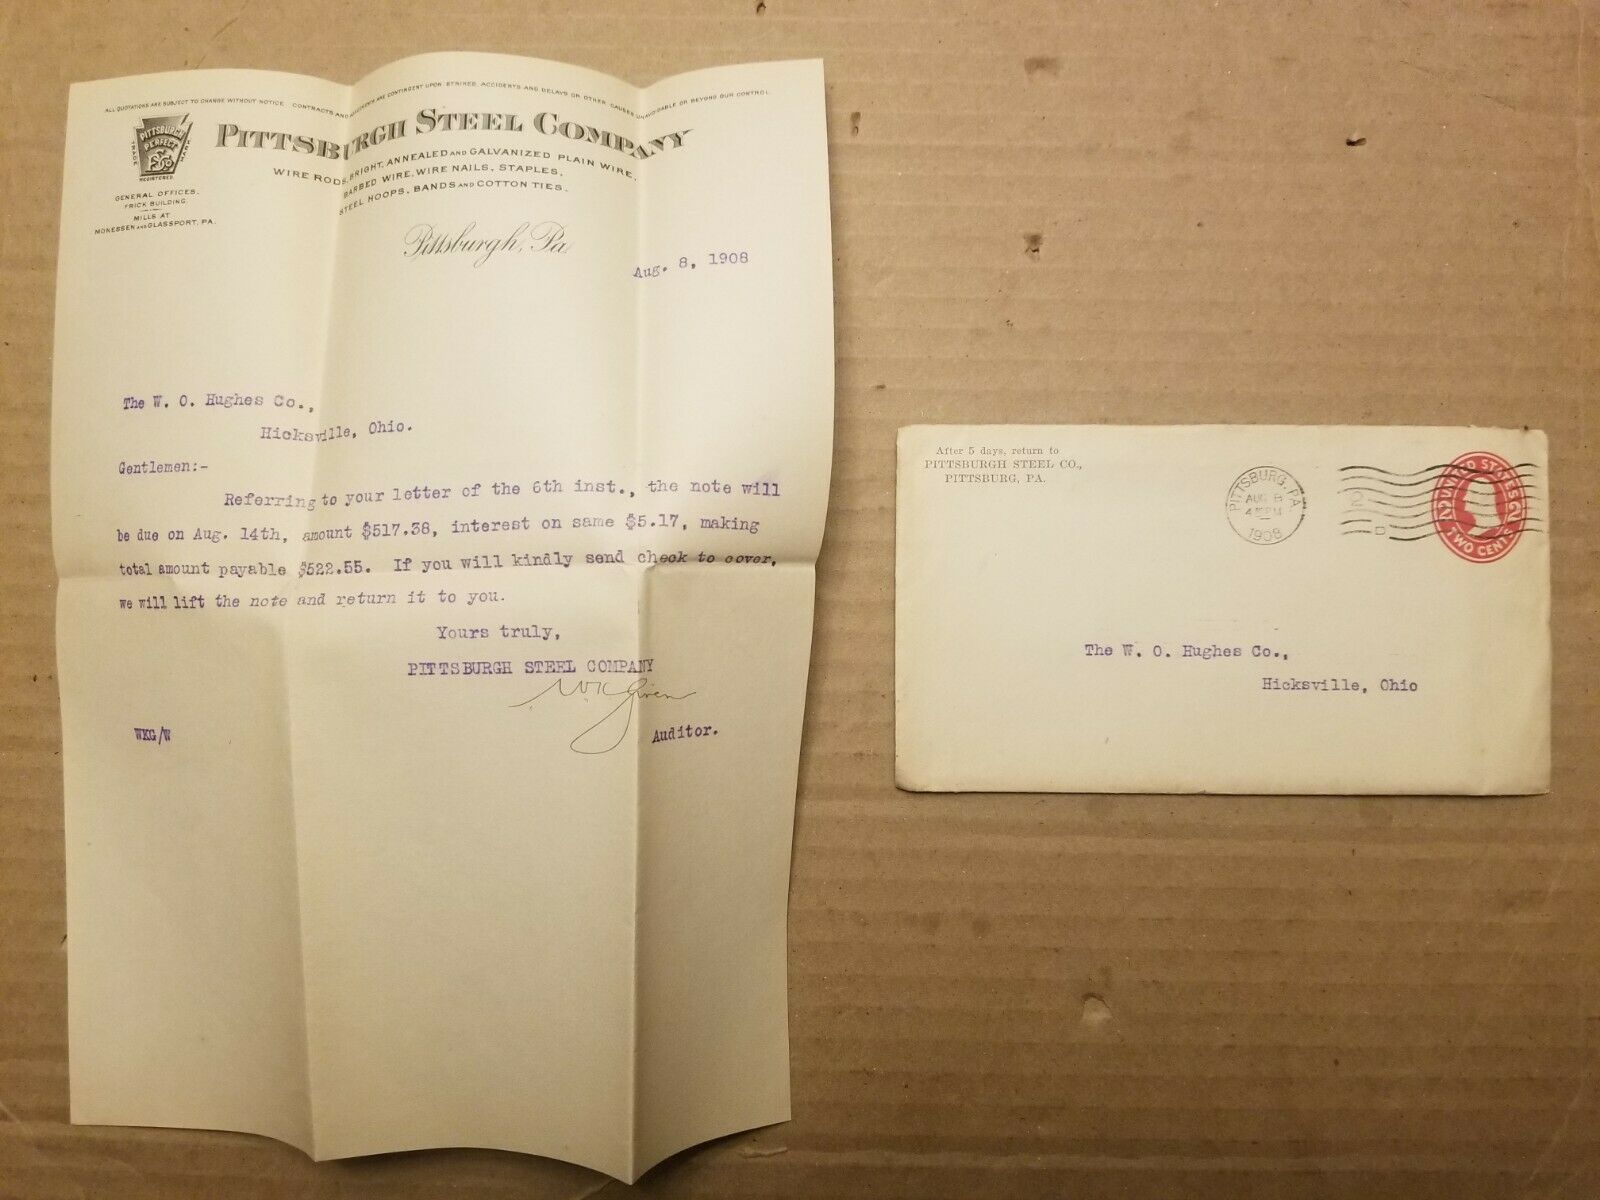 ALL QUOTATIONS ARE SUBJECT TO CHANGE WITHOUT NOTICE CONTRACTS AND AGREEMENTS ARE CONTINGENT UPON STRIKES, ACCIDENTS AND DELAYS OR OTHER CAUSES UNAVOIDABLE OR BEYOND OUR CONTROL.
PITTSBURGH
PERFECT
TRADE MARK
REGISTERED
GENERAL OFFICES,
FRICK BUILDING
MILLS AT
MONESSEN AND GLASSPORT, PA.
PITTSBURGH STEEL COMPANY
WIRE RODS, BRIGHT, ANNEALED AND GALVANIZED PLAIN WIRE,
BARBED WIRE, WIRE NAILS, STAPLES,
STEEL HOOPS, BANDS AND COTTON TIES.
Pittsburgh, Pa
Aug. 8, 1908
The W. O. Hughes Co.,
Hicksville, Ohio.
Gentlemen:-
Referring to your letter of the 6th inst., the note will
be due on Aug. 14th, amount $517.38, interest on same $5.17, making
total amount payable $522.55. If you will kindly send check to cover,
we will lift the note and return it to you.
Yours truly,
PITTSBURGH STEEL COMPANY
WK Given
WKG/W
Auditor.
After 5 days, return to
PITTSBURGH STEEL CO.,
PITTSBURG, PA.
PITTSBURG, PA.
AUG 8
1908
2
D
UNITED STATES
2 2
TWO CENTS
The W. O. Hughes Co.,
Hicksville, Ohio